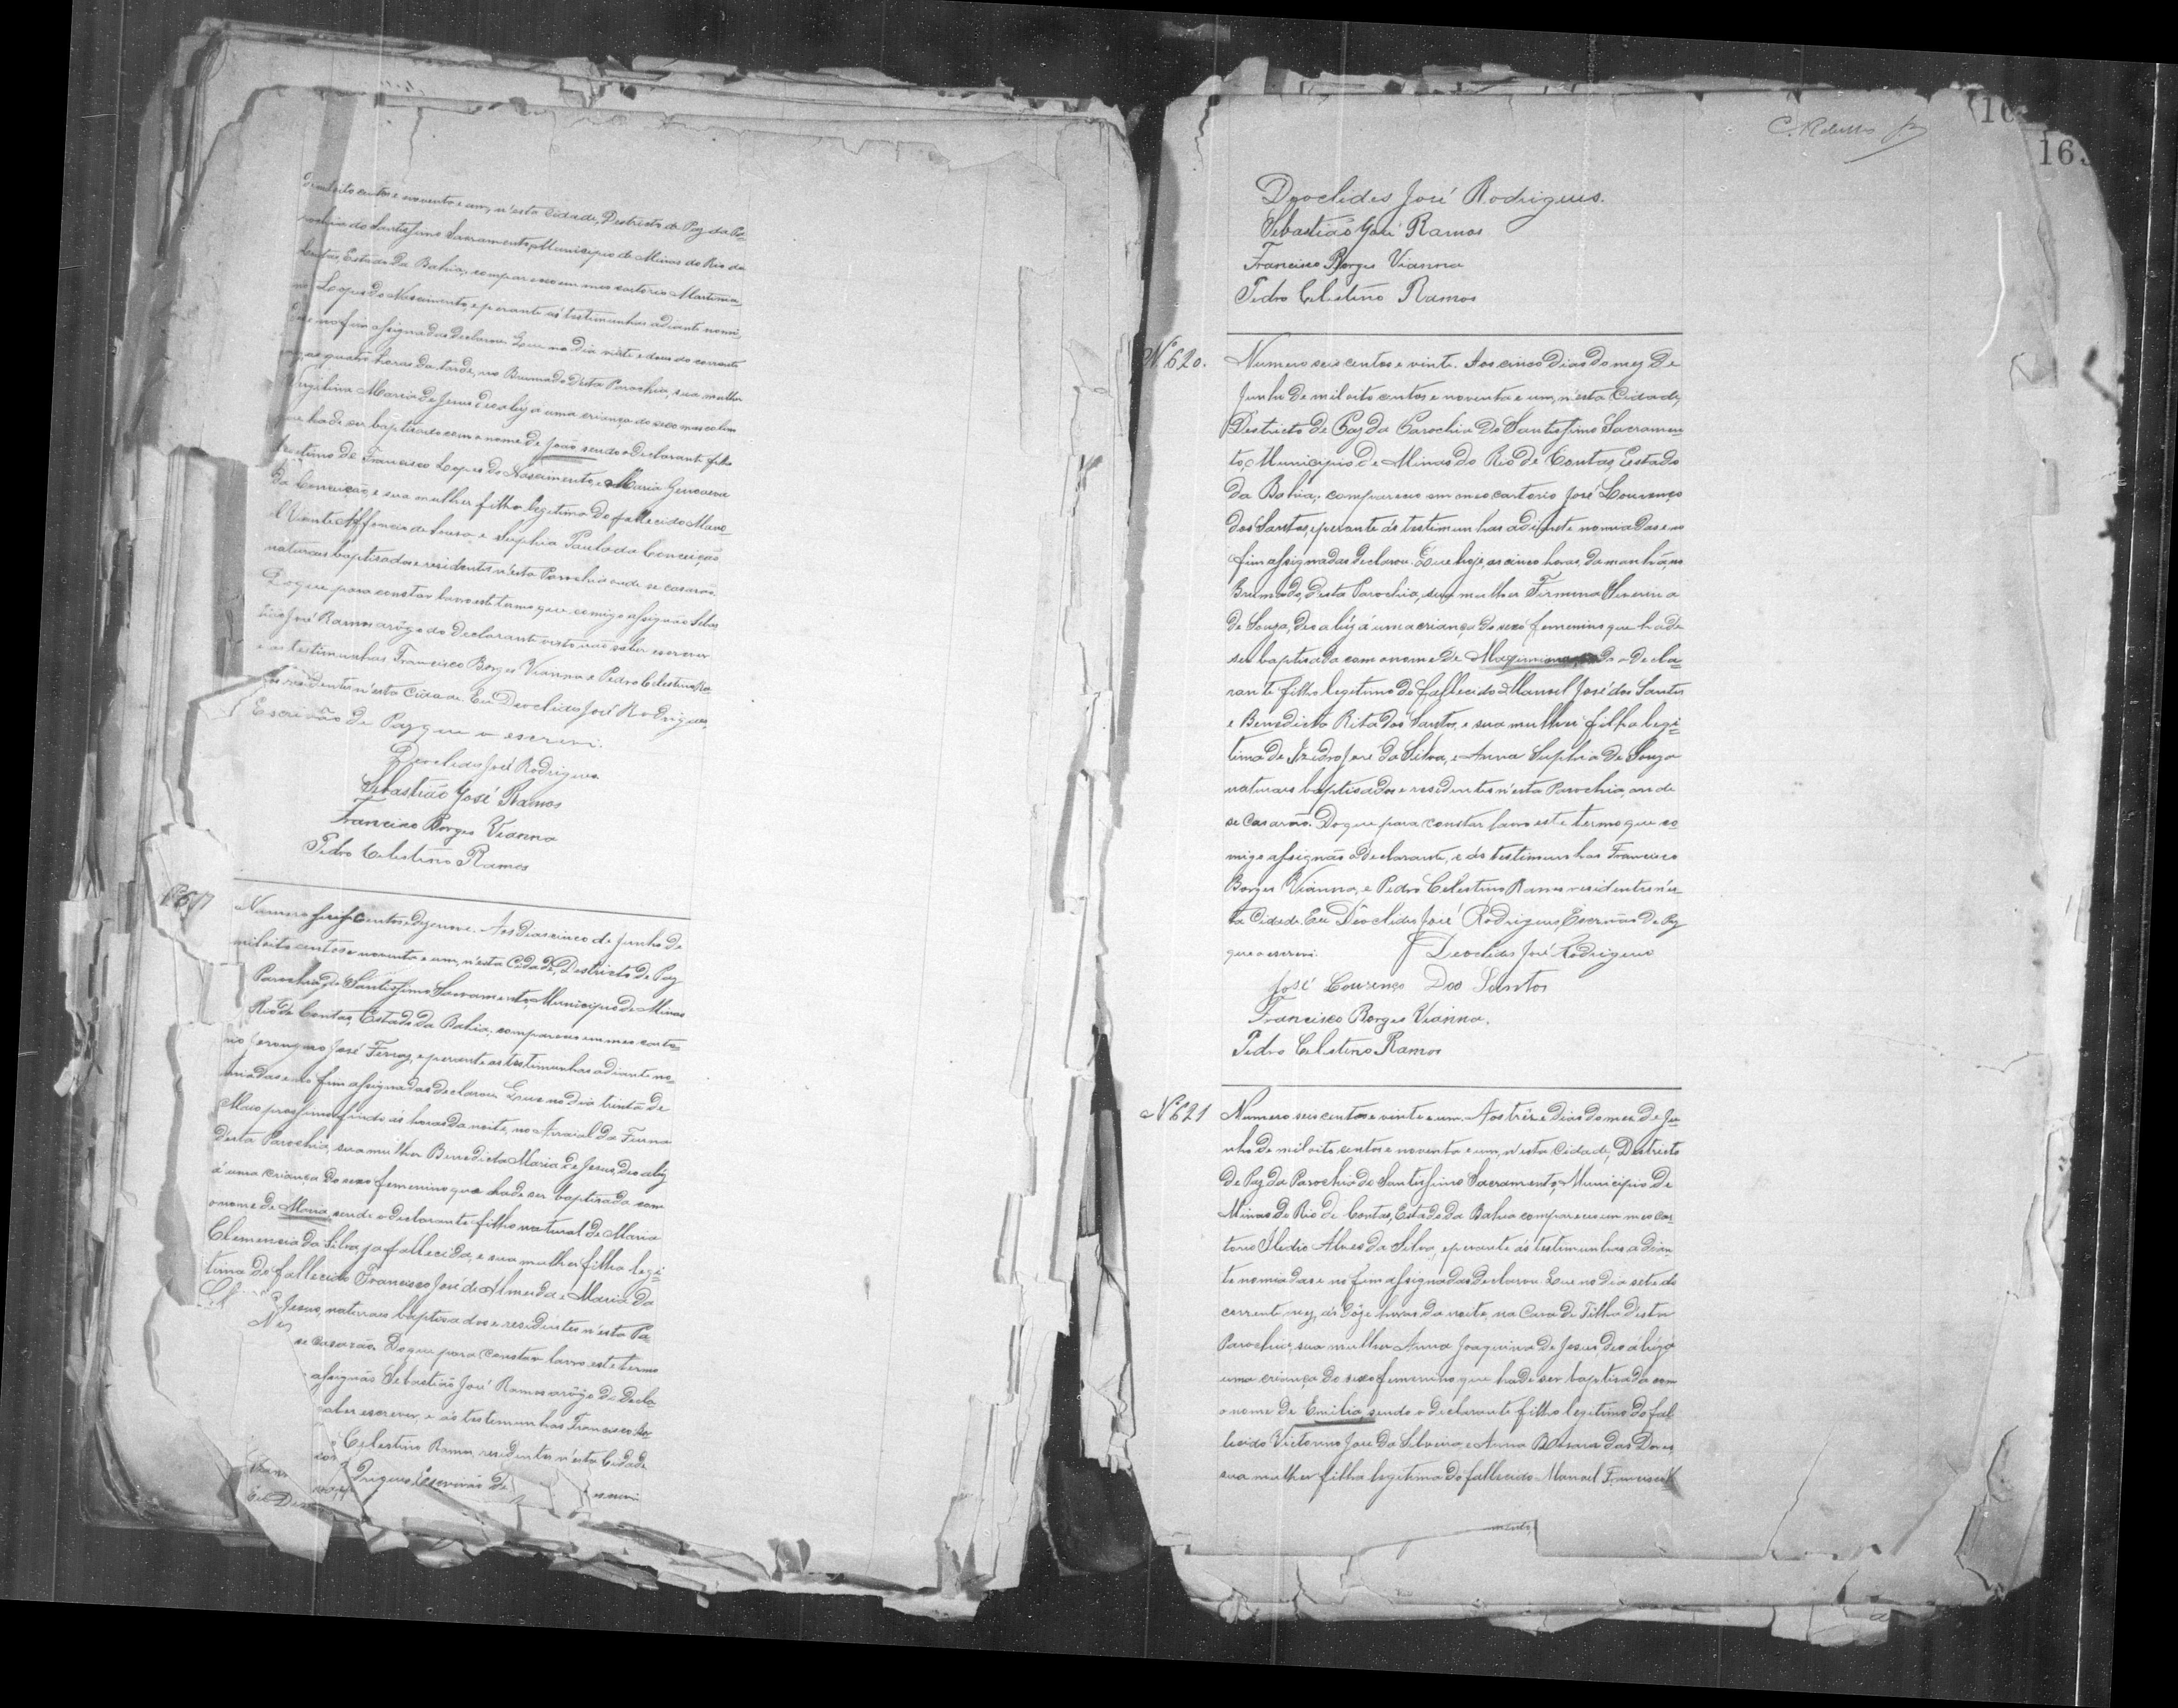 de mil oito centos e noventa e um, n'esta Cidade, Destricto de Paz da Pa-
rochia do Santissimo Sacramento, Municipio de Minas do Rio de
Contas, Estado da Bahia, compareceo em meo cartorio Martinia-
no Lopes do Nascimento, e perante ás testimunhas adiante nomi-
das e no fim assignadas declarou: Que no dia vinte e dous do corrente
as quatro horas da tarde, no Brumado desta Parochia, sua mulher
Virgilina Maria de Jesus deo a lúz á uma criança do sexo masculino
que hade ser baptisado com o nome de João, sendo o declarante filho
legitimo de Francisco Lopes do Nascimento, e Maria Genoveva
da Conceição, e sua mulher filha legitima do fallecido Mano-
el Vicente de Souza e Suphia Paula da Conceição,
naturaes baptisados e residentes n'esta Parochia onde se casarão.
Do que para constar lavro este termo que comigo assignão Sebas-
tião José Ramos arôgo do declarante visto não saber escrever
e as testimunhas Francisco Borges Vianna e Pedro Celestino Ra-
mos residentes n'esta Cidade. Eu Deoclides José Rodrigues,
Escrivão de Paz que o escrevi.
Deoclides José Rodrigues
Sebastião José Ramos
Francisco Borges Vianna
Pedro Celestino Ramos
Numero seis centos e dezenove. Aos cinco de Junho de
mil oito centos e noventa e um, n'esta Cidade, Destricto de Paz
Parochia do Santissimo Sacramento, Municipio de Minas
Rio de Contas, Estado da Bahia, compareceo em meo carto-
rio Jeronymo José Ferraz, e perante as testimunhas adiante no-
miadas e no fim assignadas declarou: Que no dia trinta de
Maio proximo findo ás horas da noite, no Arraial da Furna
d'esta Parochia, sua mulher Benedicta Maria de Jesus, deo a lúz
á uma criança do sexo femenino que hade ser baptisada com
o nome de Maria, sendo o declarante filho natural de Maria
Clemencia da Silva, ja fallecida, e sua mulher filha legi-
tima do fallecido Francisco José de Almeida e Maria da
Jesus, naturaes baptisados e residentes n'esta Pa-
se casarão. Do que para constar lavro este termo
assignão Sebastião José Ramos arôgo do decla-
saber escrever, e ás testemunhas Francisco Bor-
Celestino Ramos residentes n'esta Cidade
drigues, Escrivão de escrevi
C. Rebello
163
Deoclides José Rodrigues.
Sebastião José Ramos
Francisco Borges Vianna
Pedro Celestino Ramos
Nº 620. Numero seis centos e vinte. Aos cinco dias do mez de
Junho de mil oito centos e noventa e um, n'esta Cidade,
Destricto de Paz da Parochia do Santissimo Sacramen-
to, Municipio de Minas do Rio de Contas, Estado
da Bahia, compareceo em meo cartorio José Lourenço
dos Santos, e perante ás testimunhas adiante nomiadas e no
fim assignadas declarou: Que hoje, as cinco horas, da manhã, no
Brumado, desta Parochia, sua mulher Firmina Severina
de Souza, deo a lúz á uma criança do sexo femenino que hade
ser baptisada com o nome de Maximiana, sendo o decla-
rante filho legitimo do fallecido Manoel José dos Santos
e Benedicta Rita dos Santos, e sua mulher filha legi-
tima de Izidro José da Silva, e Anna Suphia de Souza
naturaes baptisados e residentes n'esta Parochia, onde
se Casarão. Do que para constar lavro este termo que co-
migo assignão o declarante, e ás testimunhas Francisco
Borges Vianna, e Pedro Celestino Ramos residentes n'es-
ta Cidade. Eu Deoclides José Rodrigues, Escrivão de Paz
que o escrevi. Deoclides José Rodrigues
José Lourenço Dos Santos
Francisco Borges Vianna.
Pedro Celestino Ramos
Nº 621 Numero seis centos e vinte e um. Aos trêze dias do mez de Ju-
nho de mil oito centos e noventa e um, n'esta Cidade, Destricto
de Paz da Parochia do Santissimo Sacramento, Municipio de
Minas do Rio de Contas, Estado da Bahia compareceo em meo car-
torio Ilidio Alves da Silva, e perante ás testimunhas adian-
te nomiadas e no fim assignadas declarou: Que no dia sete do
corrente mez, ás dôze horas da noite, na Casa de Tilha d'esta
Parochia, sua mulher Anna Joaquina de Jesus, deo á lúz á
uma criança do sexo femenino que hade ser baptisada com
o nome de Emilia, sendo o declarante filho legitimo do fal-
lecido Victorino José da Silveira, e Anna Barbara das Dores,
sua mulher filha legitima do fallecido Manoel Francisco